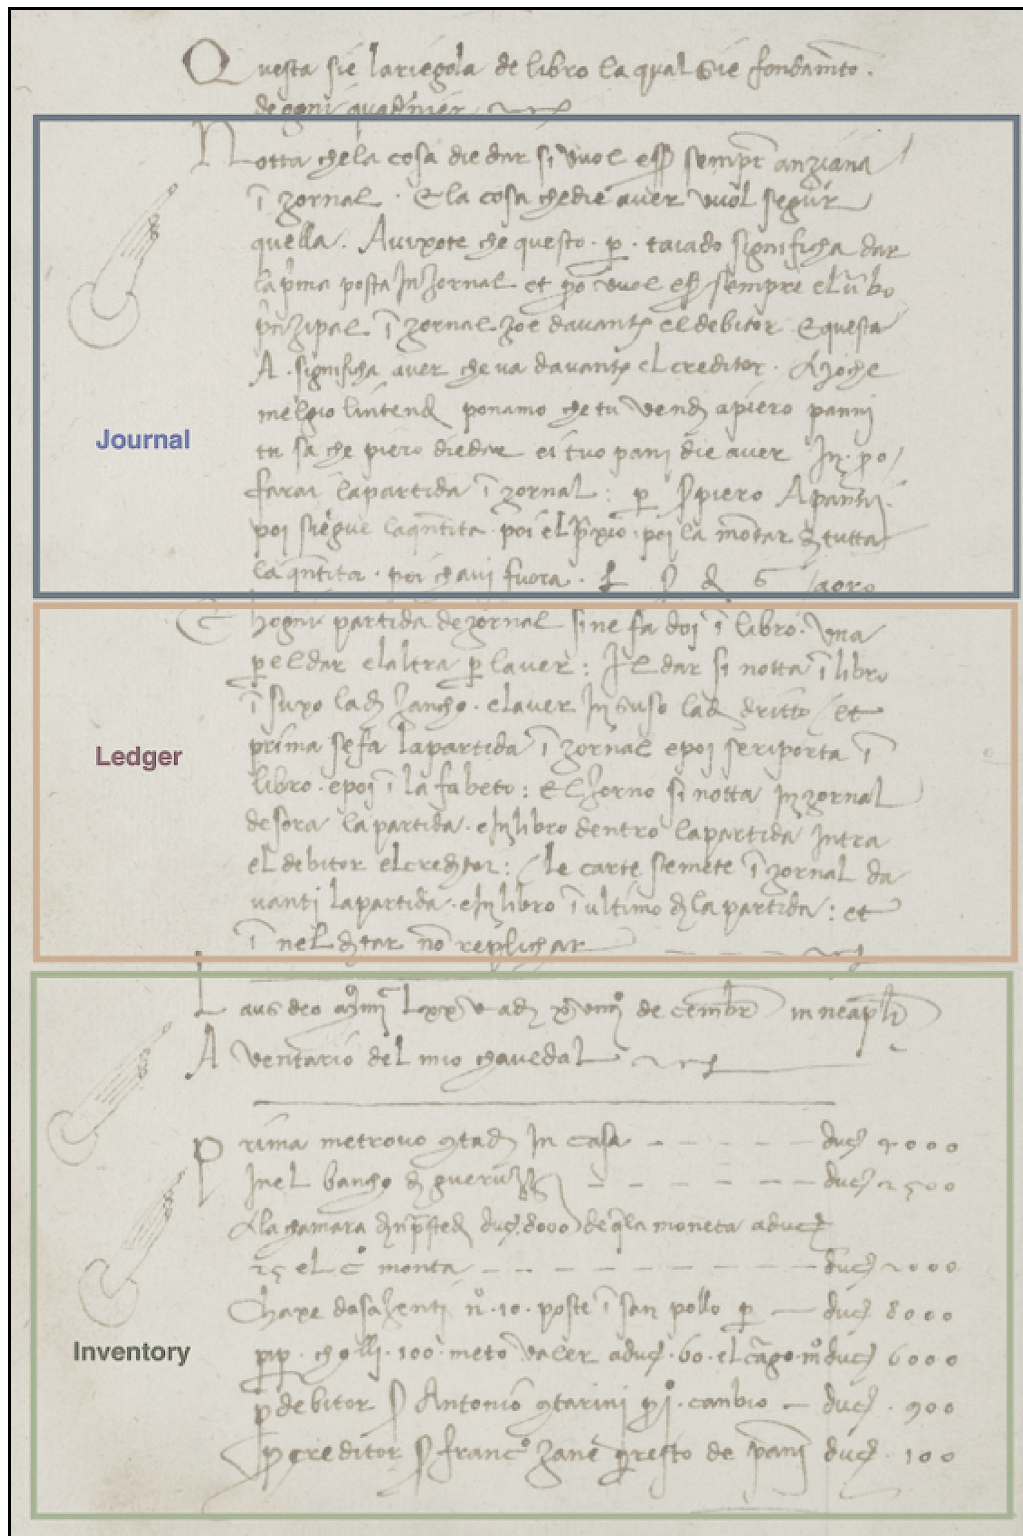 Questa sie lariegola de libro la qual sie fondamto.
de ogni quadnier
Notta chela cosa die dar si vuol esser sempr anziana
ī zornal. Ela cosa chedie aver vuol segur
quella. Avixote che questo. p. taiado significha dar
la pma posta In Zornal et po vuol esser sempre el
ī zornal zoe davantj eldebitor Equesta
A. significha aver che va davantj el creditor. Azoche
melgio lintendj ponamo che tu vendj apiero pannj
tu sa che piero diedar ei tuo panj die aver In. po
farai lapartida ī zornal: p S piero A pannj.
poi siegue laqntita. poi el pxio. poi la montar tutta
la qntita. poi chavi fuora. aoro
Chogni partida dezornal sine fa doi ī libro. Vna
p el dar elaltra p laver: Il dar si notta ī libro
ī suxo ladj zancho. elaver In suso ladj dritto et
prima sefa lapartida ī zornal epoi seriporta ī
libro. epoi ī la fabeto: El zorno si notta In zornal
desora lapartida. e In libro dentro lapartida Intra
el debitor elcreditor: le carte semete ī zornal da
vanti lapartida. e In libro ī ultimo dj la partida: et
ī nel no replichar
Journal
Ledger
Laus deo Lxxv adj de cembr in neaplj
A ventario del mio chavedal
Prima metrovo gtadj In casa - - - - - duc 4000
Inel bancho dj - - - - - duc 2500
Ala chamara duc. 8000 de qla moneta aduc
25 el C° monta - - - - - - - duc 2000
Chaxe n°. 10. poste ī san pollo p — duc 8000
pip. cholli. 100. meto valer aduc. 60. el cago. m° duc 6000
p debitor S Antonio gtarini canbio — duc. 900
p creditor S franc° zane resto de panj duc. 100
Inventory